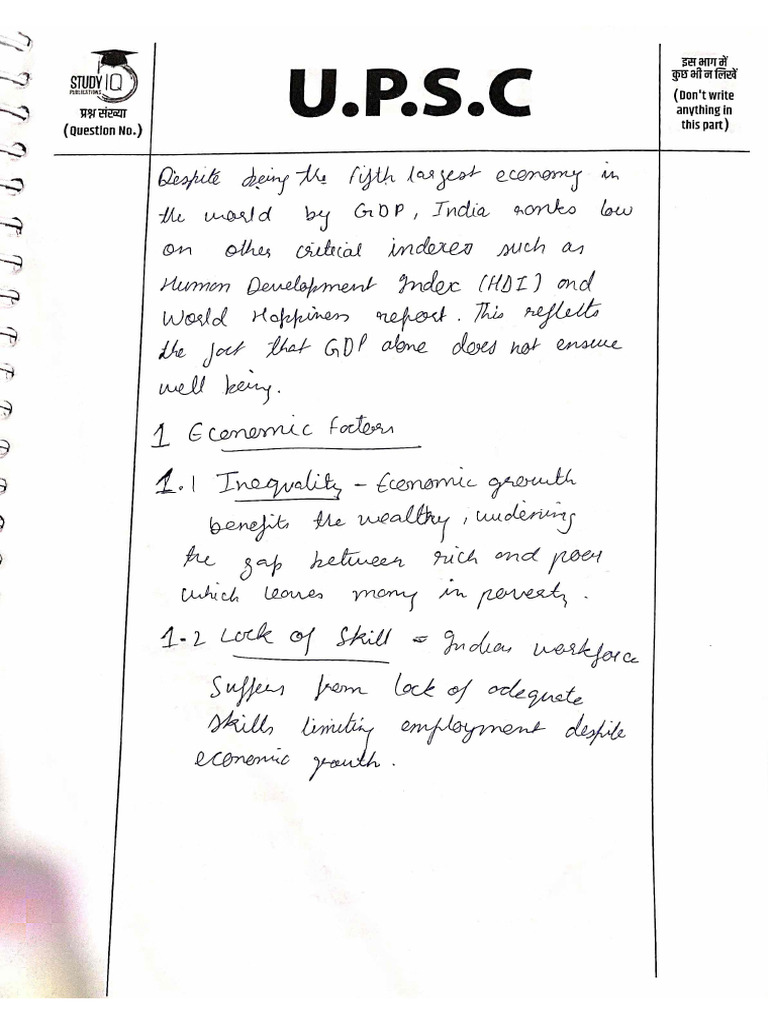 STUDY IQ
PUBLICATIONS
प्रश्न संख्या
(Question No.)
U.P.S.C
इस भाग में
कुछ भी न लिखें
(Don't write
anything in
this part)
Despite being the fifth largest economy in
the world by GDP, India ranks low
on other critical indexes such as
Human Development Index (HDI) and
World Happiness report. This reflects
the fact that GDP alone does not ensure
well being.
1 Economic Factors
1.1 Inequality - Economic growth
benefits the wealthy, widening
the gap between rich and poor
which leaves many in poverty.
1.2 Lack of Skill = Indias workforce
Suffers from lack of adequate
skills limiting employment despite
economic growth.